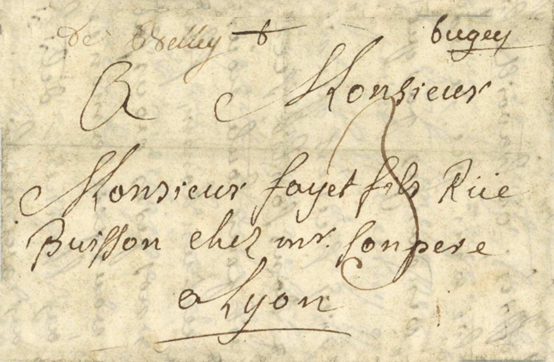 De Belley bugey
A Monsieur
Monsieur fayet fils Rüe
Buisson chez mr. Sonpere
a Lyon